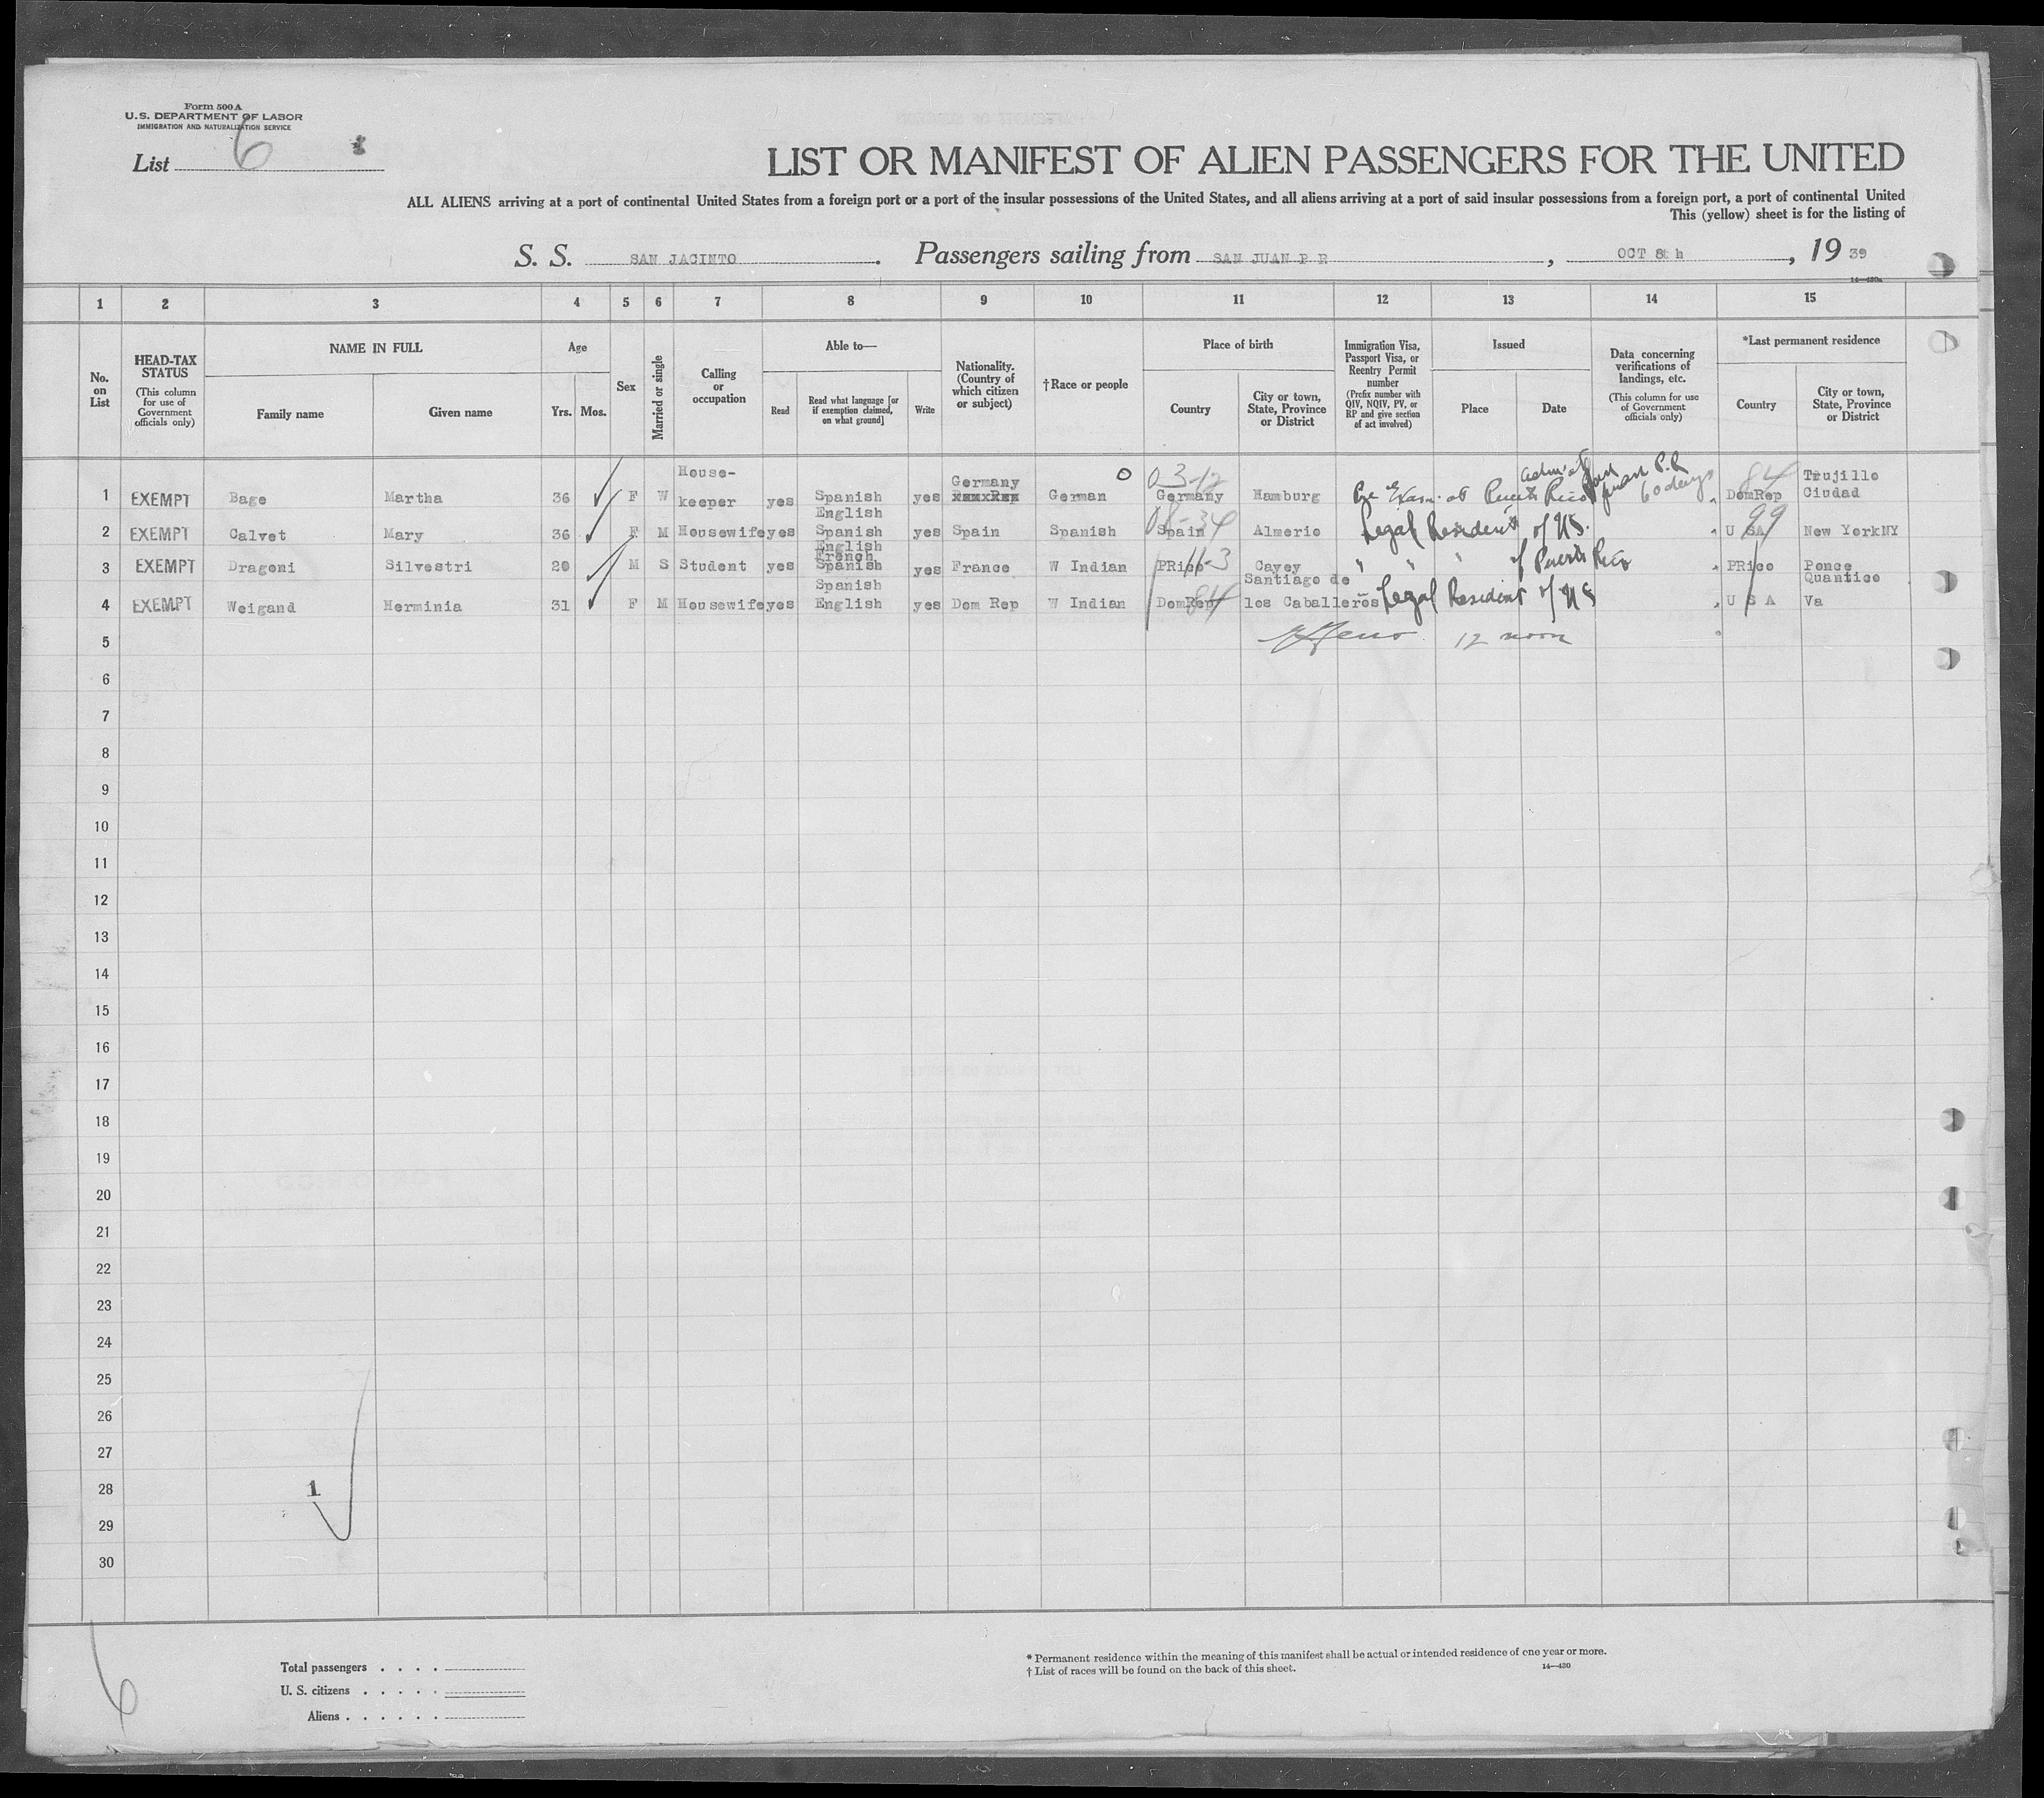 Form 500 A
U.S. DEPARTMENT OF LABOR
IMMIGRATION AND NATURALIZATION SERVICE
List 6
LIST OR MANIFEST OF ALIEN PASSENGERS FOR THE UNITED
ALL ALIENS arriving at a port of continental United States from a foreign port or a port of the insular possessions of the United States, and all aliens arriving at a port of said insular possessions from a foreign port, a port of continental United
This (yellow) sheet is for the listing of
S. S. SAN JACINTO . Passengers sailing from SAN JUAN P R , OCT 8th , 19 39
14—430a
1 2 3 4 5 6 7 8 9 10 11 12 13 14 15
No. on List
HEAD-TAX STATUS
(This column for use of Government officials only)
NAME IN FULL
Family name
Given name
Age
Yrs. Mos.
Sex
Married or single
Calling or occupation
Able to—
Read
Read what language [or if exemption claimed, on what ground]
Write
Nationality. (Country of which citizen or subject)
†Race or people
Place of birth
Country
City or town, State, Province or District
Immigration Visa, Passport Visa, or Reentry Permit number
(Prefix number with QIV, NQIV, PV, or RP and give section of act involved)
Issued
Place
Date
Data concerning verifications of landings, etc.
(This column for use of Government officials only)
*Last permanent residence
Country
City or town, State, Province or District
1 EXEMPT Bage Martha 36 F W House-keeper yes Spanish English yes Germany German 03-12 Germany Hamburg Pre Exam. at Puerto Rico adm. at San Juan P.R. 60 days 84 DomRep Trujillo Ciudad
2 EXEMPT Calvet Mary 36 F M Housewife yes Spanish English yes Spain Spanish Spain Almerie Legal Resident of US. 99 U SA New YorkNY
3 EXEMPT Dragoni Silvestri 20 M S Student yes French Spanish yes France W Indian PRico Cayey " " " of Puerto Rico PRico Ponce
4 EXEMPT Weigand Herminia 31 F M Housewife yes Spanish English yes Dom Rep W Indian DomRep 84 Santiago de los Caballeros Legal Resident of US U S A Quantico Va
5 12 noon
6
7
8
9
10
11
12
13
14
15
16
17
18
19
20
21
22
23
24
25
26
27
28 1
29
30
6
Total passengers . . . .
U. S. citizens . . . . .
Aliens . . . . . .
* Permanent residence within the meaning of this manifest shall be actual or intended residence of one year or more.
† List of races will be found on the back of this sheet.
14—430